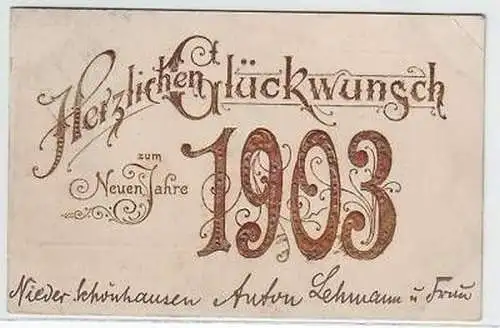 Herzlichen Glückwunsch
zum
Neuen Jahre
1903
Nieder Schönhausen Anton Lehmann u Frau